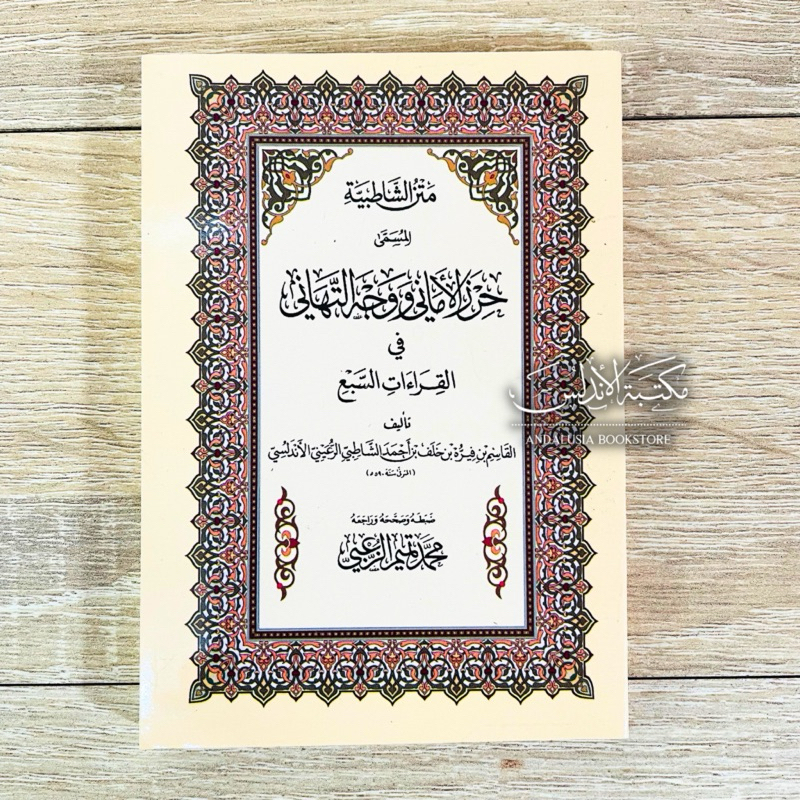 مَتْنُ الشَّاطِبِيَّةِ
المُسَمَّىٰ
حِرْزَ الأَمَانِي وَوَجْهَ التَّهَانِي
فِي
القِرَاءَاتِ السَّبْعِ
تأليف
القَاسِمِ بْنِ فِيرُّهْ بْنِ خَلَفِ بْنِ أَحْمَدَ الشَّاطِبِيِّ الرُّعَيْنِيِّ الأَنْدَلُسِيِّ
(المتوفى سنة ٥٩٠)
ضَبَطَهُ وَصَحَّحَهُ وَرَاجَعَهُ
مُحَمَّد تَمِيم الزُّعْبِيّ
مكتبة الأندلس
ANDALUSIA BOOKSTORE